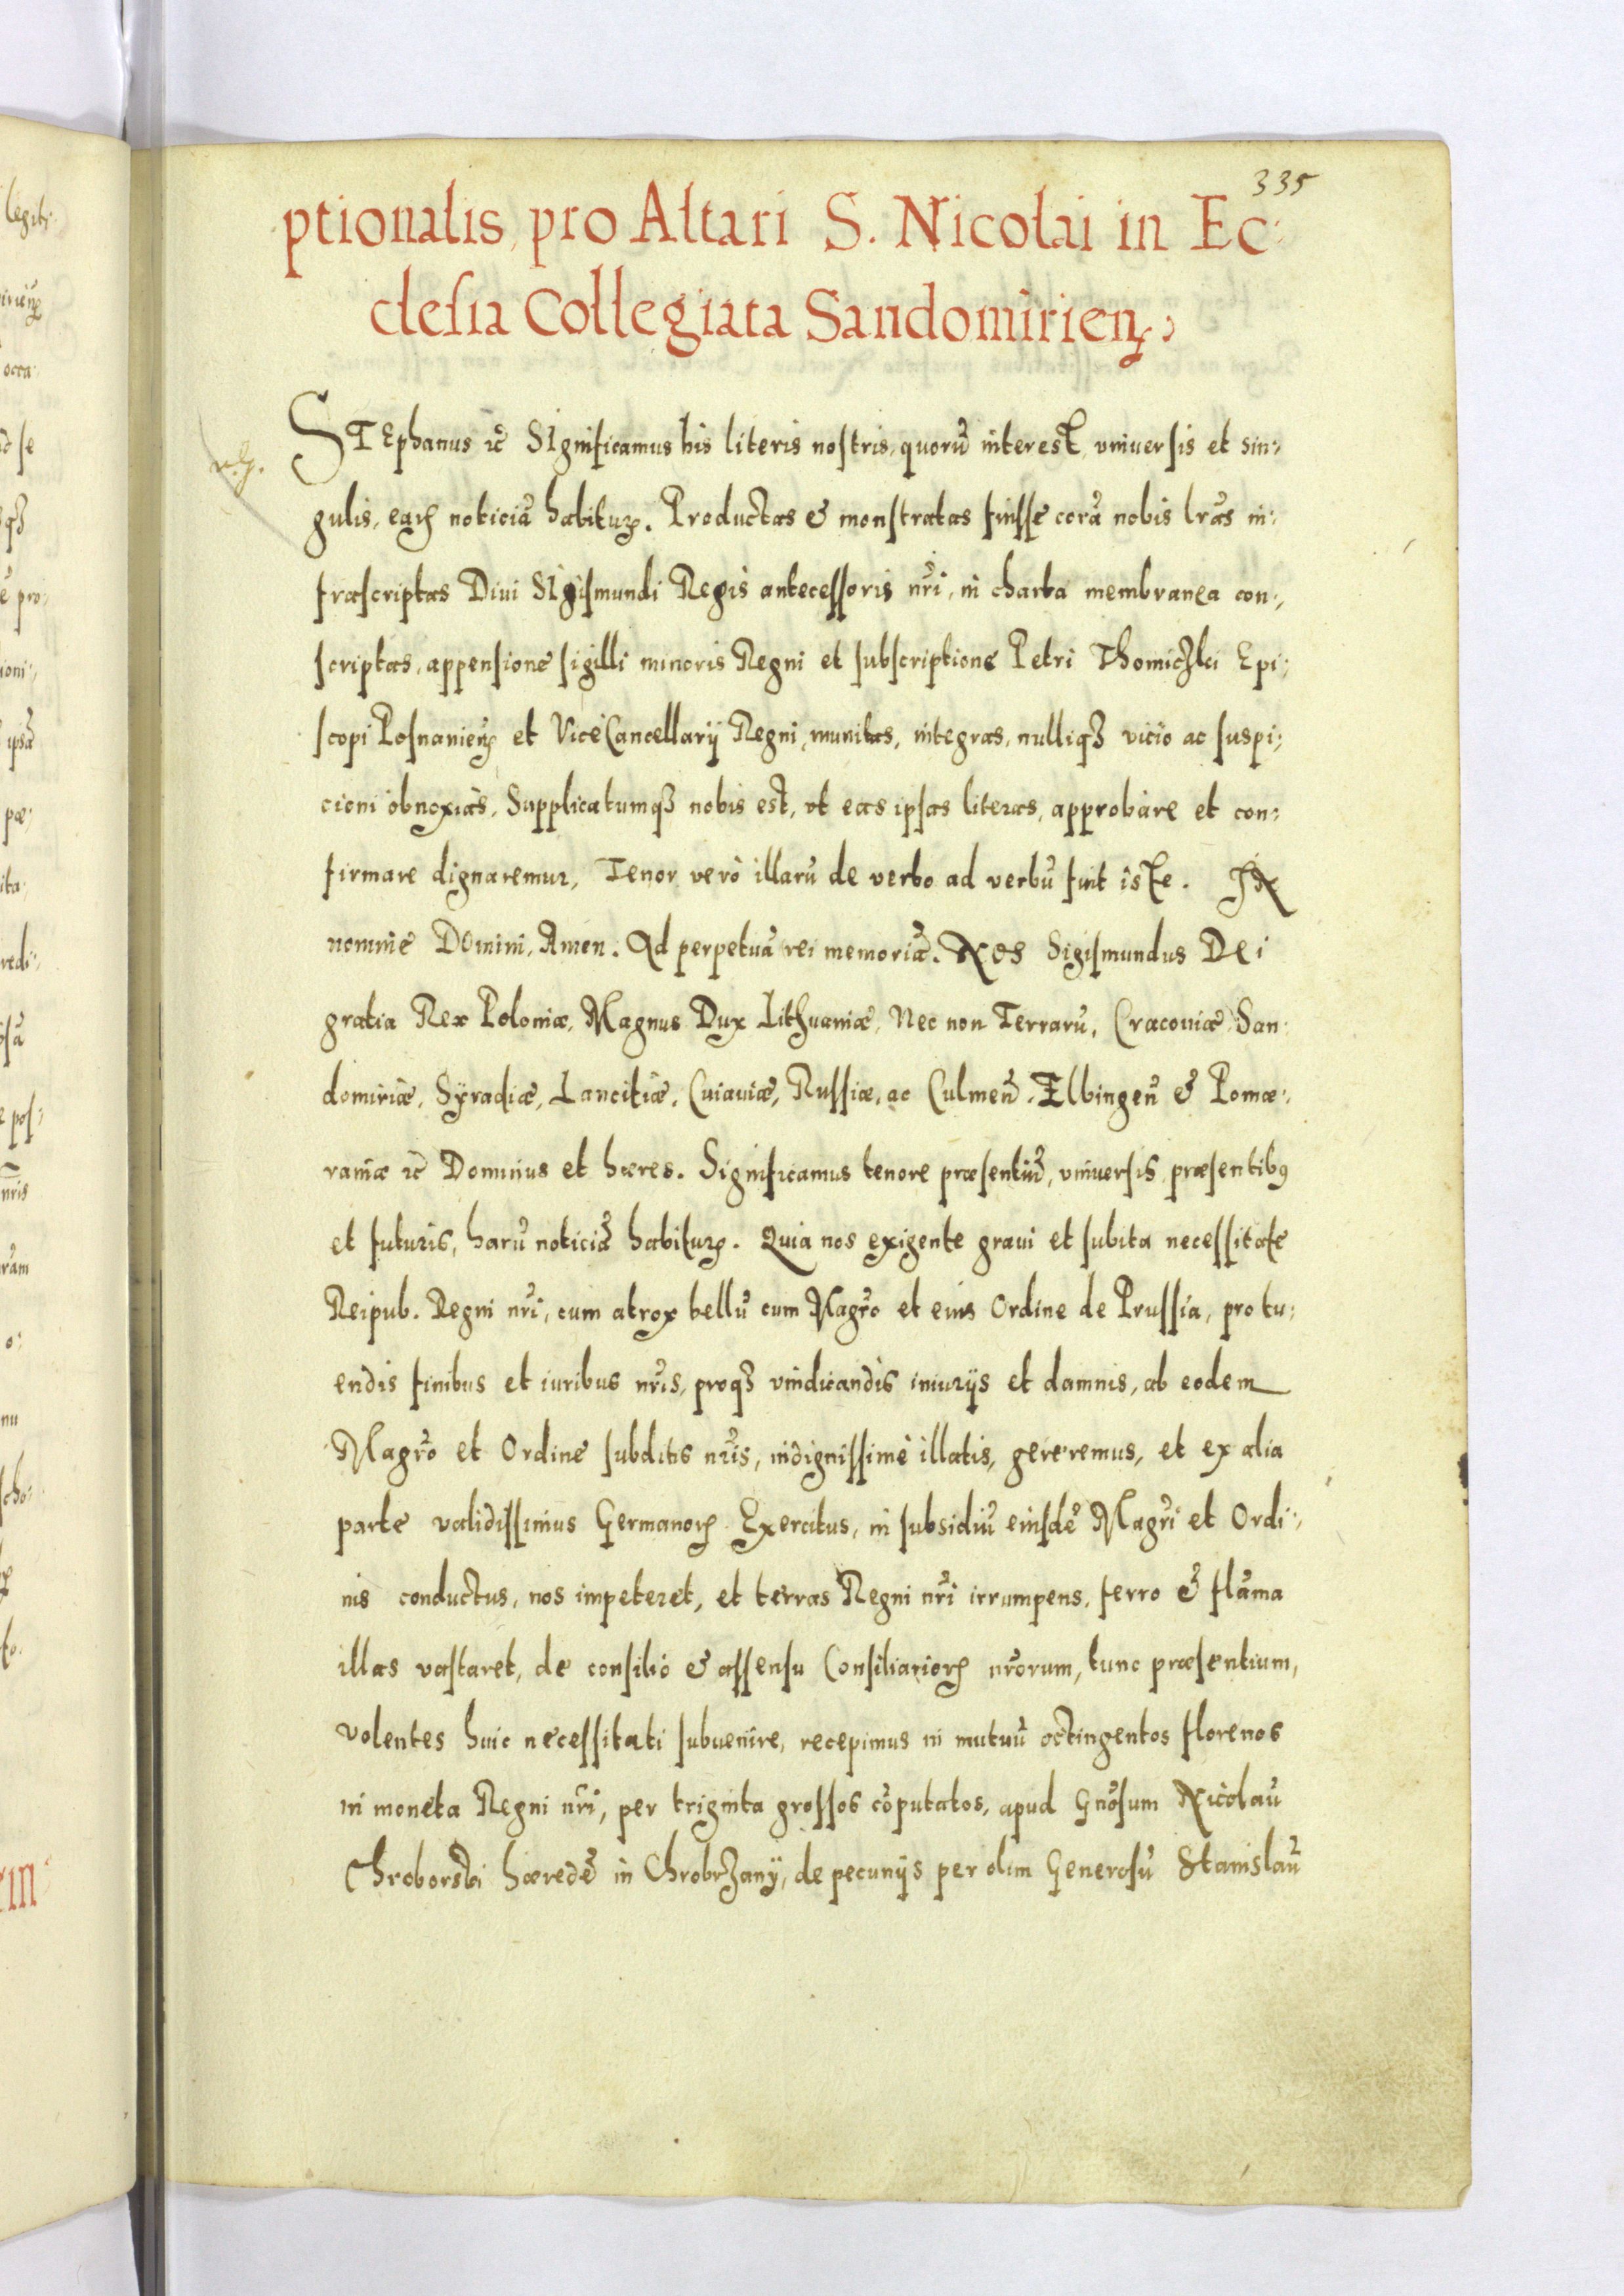 335
ptionalis, pro Altari S. Nicolai in Ec:
clesia Collegiata Sandomirien̄.
STEphanus ꝛc̃ SIgnificamus his literis nostris, quorũ interest, vniuersis et sin:
gulis, eaꝝ noticiã habituꝝ. Productas & monstratas fuisse corã nobis lr̃as in:
frascriptas Diui SIgismundi Regis antecessoris nr̃i, in charta membranea con:
scriptas, appensione sigilli minoris Regni et subscriptione Petri Thomiczki Epi:
scopi Posnanien̄ et ViceCancellarij Regni, munitas, integras, nulliqꝫ vicio ac suspi:
cioni obnoxias, Supplicatumqꝫ nobis est, vt eas ipsas literas, approbare et con:
firmare dignaremur, Tenor verò illarũ de verbo ad verbũ fuit iste. IN
nomine DOmini, Amen. Ad perpetuã rei memoriã. NOS Sigismundus DEi
gratia Rex Poloniæ, Magnus Dux Lithuaniæ, Nec non Terrarũ, Cracouiæ, San:
domiriæ, Syradiæ, Lancitiæ, Cuiauiæ, Russiæ, ac Culmen̄, Elbingen̄ & Pomæ:
raniæ ꝛc̃ Dominus et hæres. Significamus tenore præsentiũ, vniuersis, præsentibꝰ
et futuris, harũ noticiã habituꝝ. Quia nos exigente graui et subita necessitate
Reipub. Regni nr̃i, cum atrox bellũ cum Magr̃o et eius Ordine de Prussia, pro tu:
endis finibus et iuribus nr̃is, proqꝫ vindicandis iniurijs et damnis, ab eodem
Magr̃o et Ordine subditis nr̃is, indignissimè illatis, gereremus, et ex alia
parte validissimus Germanoꝝ Exercitus, in subsidiũ eiusdẽ Magr̃i et Ordi:
nis conductus, nos impeteret, et terras Regni nr̃i irrumpens, ferro & flãma
illas vastaret, de consilio & assensu Consiliarioꝝ nr̃orum, tunc præsentium,
volentes huic necessitati subuenire, recepimus in mutuũ octingentos florenos
in moneta Regni nr̃i, per triginta grossos cõputatos, apud Gñosum Nicolaũ
Chroborski hæredẽ in Chrobrzany, de pecunijs per olim Generosũ Stanislaũ